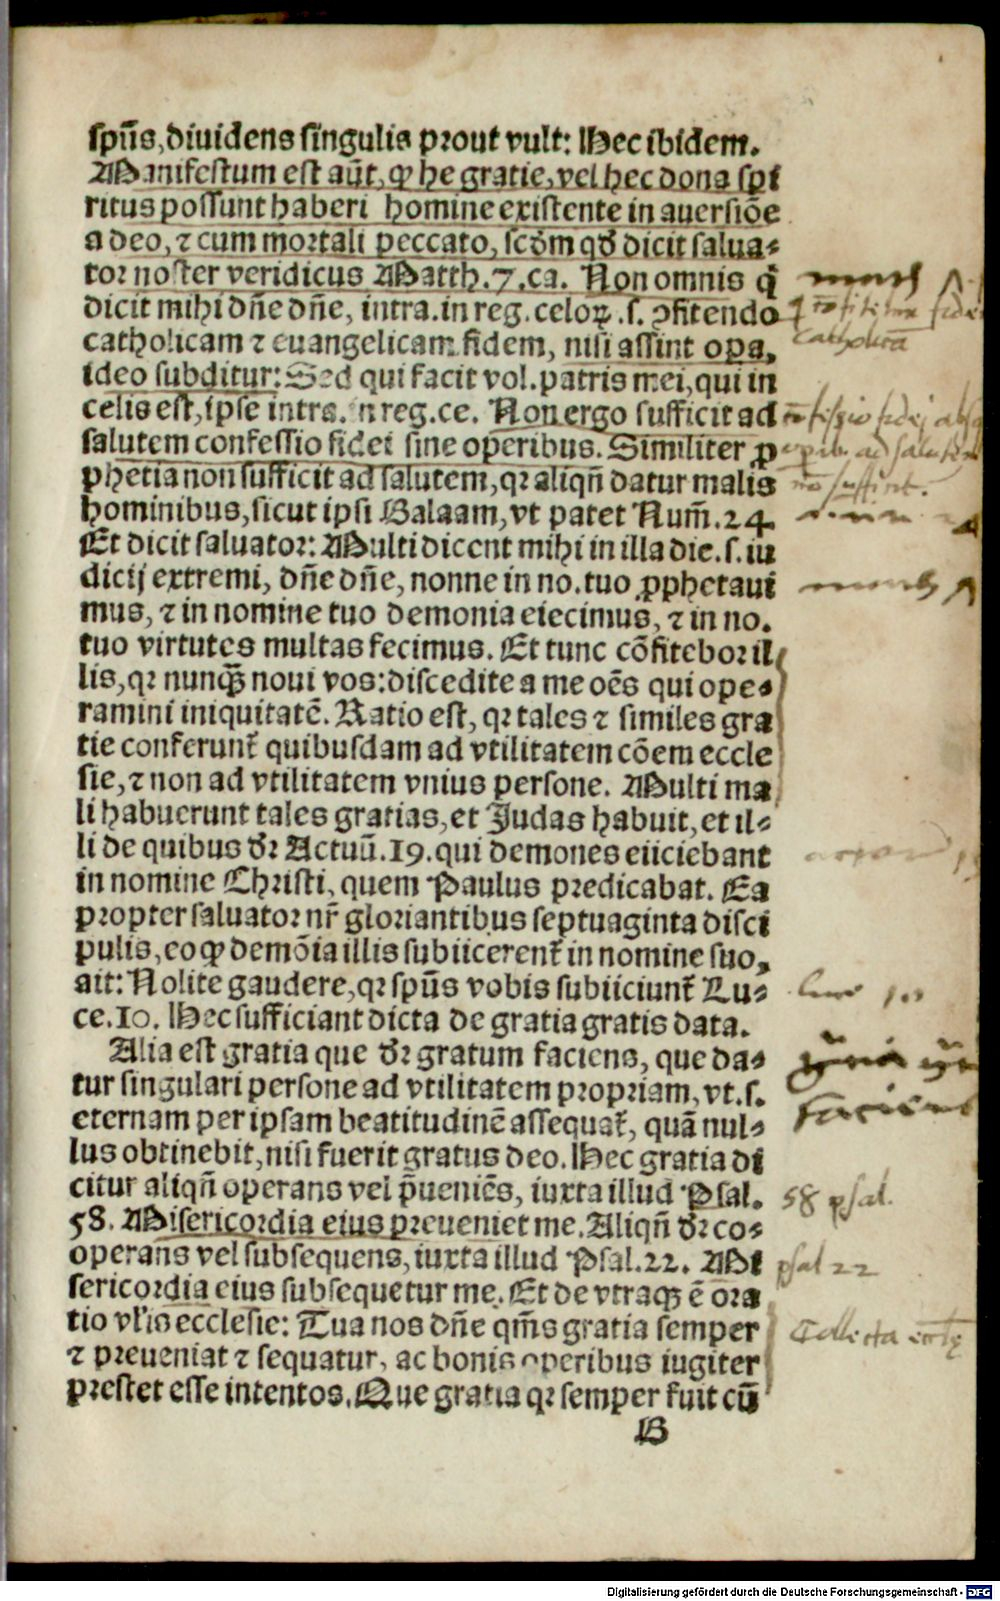 spūs, diuidens singulis prout vult: Hec ibidem.
Manifestum est aūt, ꝙ he gratie, vel hec dona spi
ritus possunt haberi homine existente in auersiōe
a deo, ⁊ cum mortali peccato, scḋm qḋ dicit salua⸗
tor noster veridicus Matth. 7. ca. Non omnis q̄
dicit mihi dn̄e dn̄e, intra. in reg. celoꝝ .s. ꝯfitendo
catholicam ⁊ euangelicam fidem, nisi assint opa,
ideo subditur: Sed qui facit vol. patris mei, qui in
celis est, ipse intra. in reg. ce. Non ergo sufficit ad
salutem confessio fidei sine operibus. Similiter ꝓ
phetia non sufficit ad salutem, qꝛ aliqn̄ datur malis
hominibus, sicut ipsi Balaam, vt patet Num̄. 24.
Et dicit saluator: Multi dicent mihi in illa die .s. iu
dicij extremi, dn̄e dn̄e, nonne in no. tuo ꝓphetaui
mus, ⁊ in nomine tuo demonia eiecimus, ⁊ in no.
tuo virtutes multas fecimus. Et tunc cōfitebor il
lis, qꝛ nunqꝫ noui vos: discedite a me oēs qui ope⸗
ramini iniquitatē. Ratio est, qꝛ tales ⁊ similes gra
tie conferunt᷑ quibusdam ad vtilitatem cōem eccle
sie, ⁊ non ad vtilitatem vnius persone. Multi ma
li habuerunt tales gratias, et Judas habuit, et il⸗
li de quibus ḋꝛ Actuū. 19. qui demones eiiciebant
in nomine Christi, quem Paulus predicabat. Ea
propter saluator nr̄ gloriantibus septuaginta disci
pulis, eo ꝙ demōia illis subiicerent᷑ in nomine suo,
ait: Nolite gaudere, qꝛ spūs vobis subiiciunt᷑ Lu⸗
ce. 10. Hec sufficiant dicta de gratia gratis data.
Alia est gratia que ḋꝛ gratum faciens, que da⸗
tur singulari persone ad vtilitatem propriam, vt .s.
eternam per ipsam beatitudinē assequat᷑, quā nul⸗
lus obtinebit, nisi fuerit gratus deo. Hec gratia di
citur aliqn̄ operans vel p̄ueniēs, iuxta illud Psal.
58. Misericordia eius preueniet me. Aliqn̄ ḋꝛ co⸗
operans vel subsequens, iuxta illud Psal. 22. Mi
sericordia eius subsequetur me. Et de vtraqꝫ ē ora
tio vl̄is ecclesie: Tua nos dn̄e qm̄s gratia semper
⁊ preueniat ⁊ sequatur, ac bonis operibus iugiter
prestet esse intentos. Que gratia qꝛ semper fuit cū
B
math 7
catholicā
math 7
luce 10
faciens
58 psal.
psal 22
Collecta
Digitalisierung gefördert durch die Deutsche Forschungsgemeinschaft - DFG